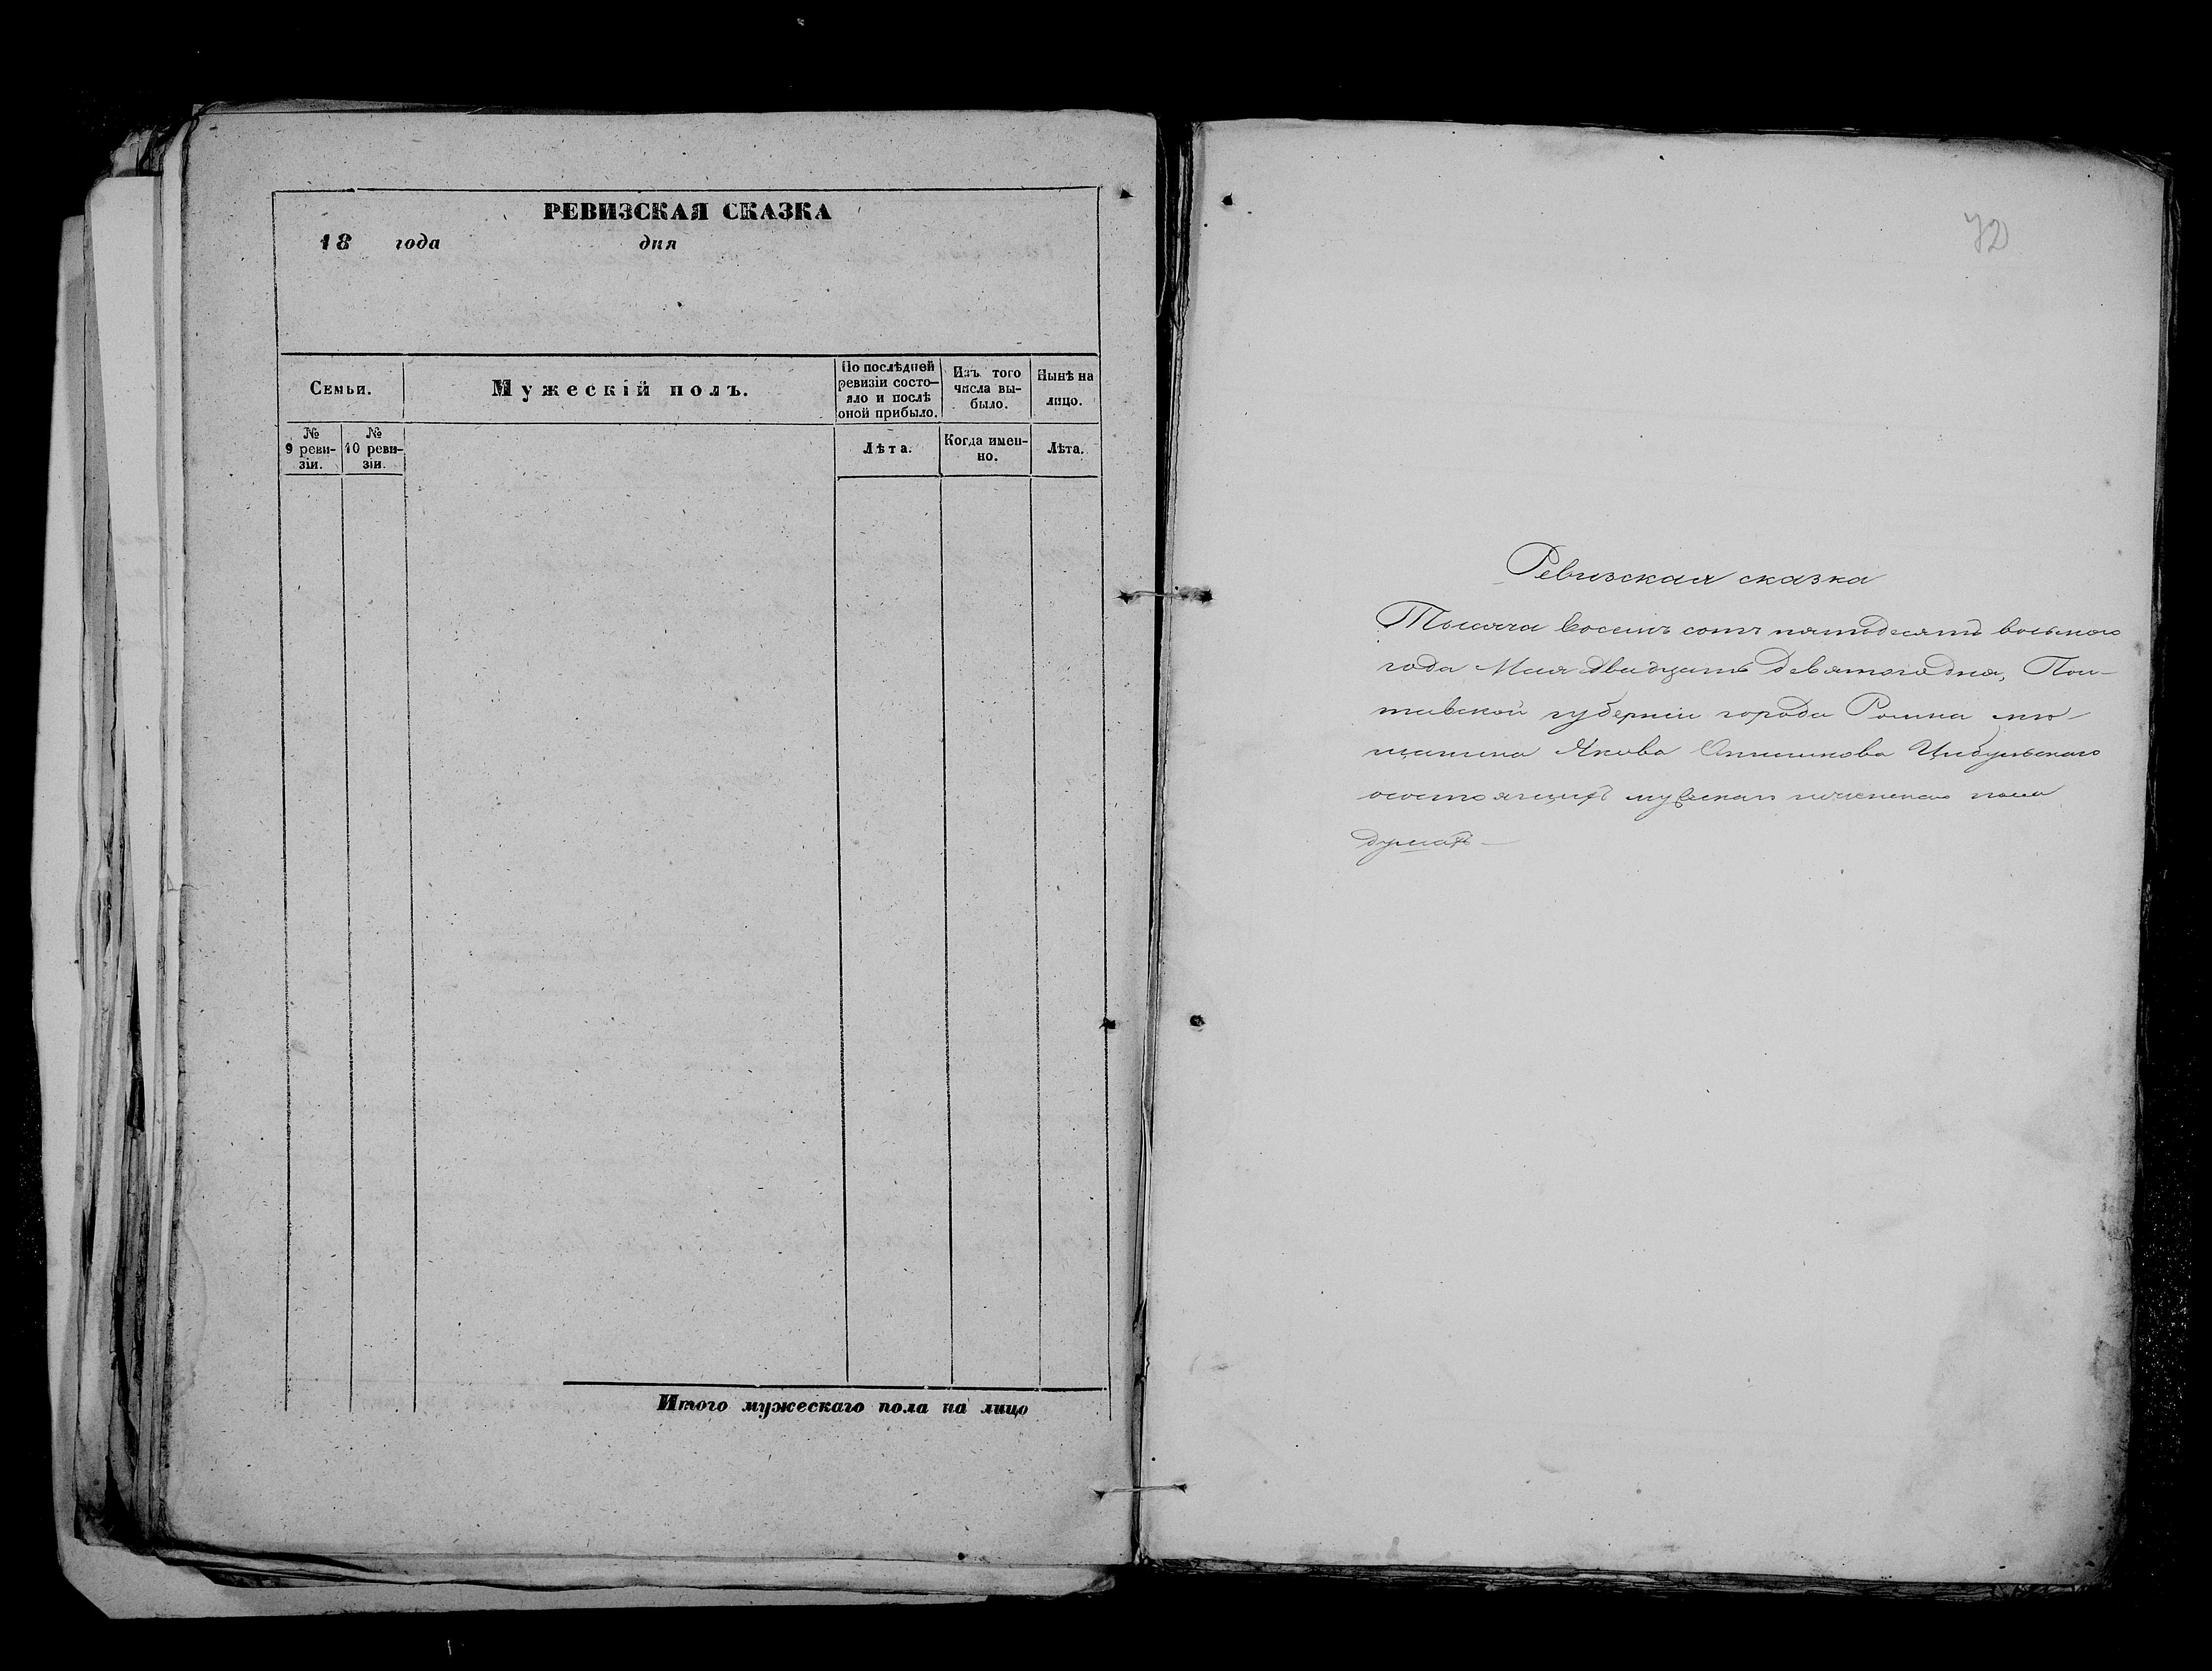 РЕВИЗСКАЯ СКАЗКА
18 года дня
Семьи.
Мужескій полъ.
По послѣдней ревизіи состо-
яло и послѣ
оной прибыло.
Изъ того
числа вы-
было.
Нынѣ на
лицо.
№
9 реви-
зіи.
№
10 реви-
зіи.
Лѣта.
Когда имен-
но.
Лѣта.
Итого мужескаго пола на лицо
72
Ревизская сказка
Тысяча восемъ сотъ пятьдесятъ восьмаго
года Мая двадцать девятаго дня, Пол-
тавской губерніи города Ромна мѣ-
щанина Якова Цибульскаго
о состоящихъ мужескаго и женскаго пола
душахъ